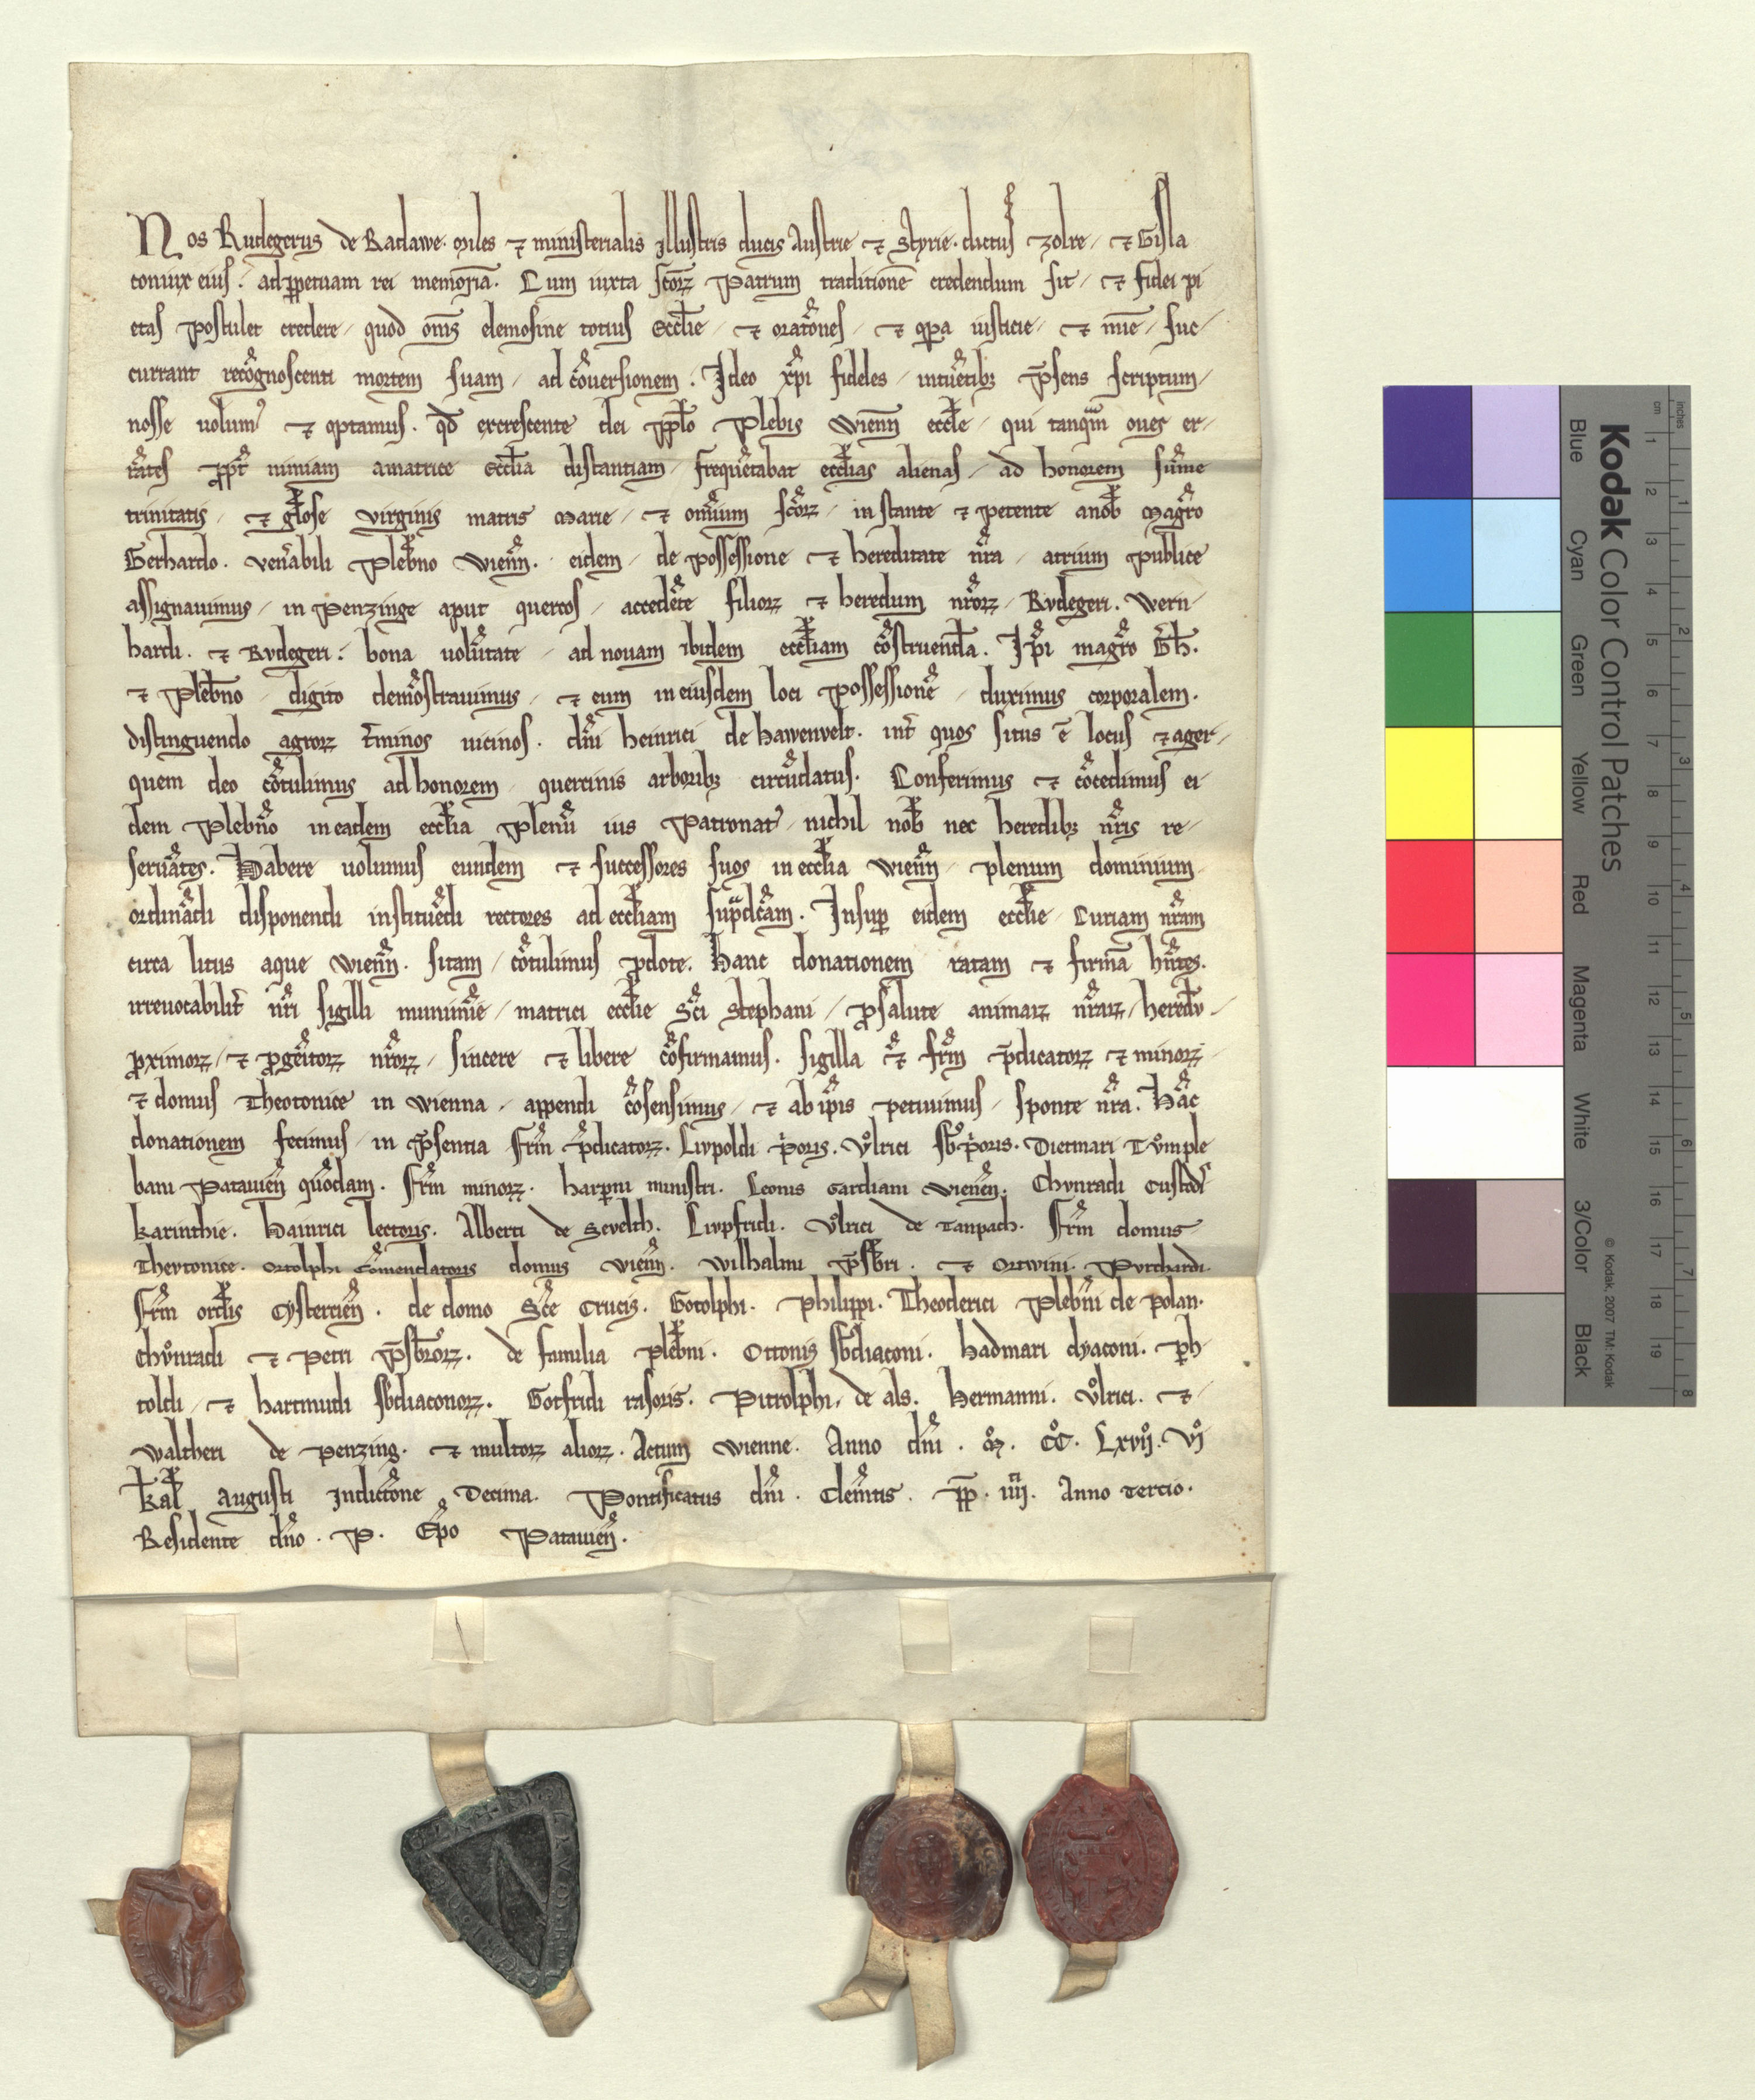 Nos Rudegerus de Radawe. miles ⁊ ministerialis Illustris ducis Austrie ⁊ Styrie. dictus zolre / ⁊ Gisla
coniux eius. ad ꝑpetuam rei memoriā. Cum iuxta scōꝝ Patrum traditionē credendum sit / ⁊ fidei pi
etas postulet credere / quod om̄s elemosine totius Eccl̄ie / ⁊ orat̄ones / ⁊ oꝑa iusticie / ⁊ mīe / suc/
currant recōgnoscenti mortem suam / ad cōuersionem. Ideo xp̄i fideles / intuētibꝫ p̄sens scriptum /
nosse uolumꝰ ⁊ optamus. qd̄ excrescente dei ppl̄o Plebis Wienn̄ eccl̄e / qui tanqm̄ oues er/
rātes ꝓpt̄ nimiam amatrice Eccl̄ia distantiam / frequētabat eccl̄ias alienas / ad honorem sūme
trinitatis / ⁊ gl̄ose virginis matris Marie / ⁊ om̄ium scōꝝ / instante ⁊ petente anob̄ Magr̄o
Gerhardo. ven̄abili Pleb̄no Wienn̄. eidem / de possessione ⁊ hereditate nr̄a / atrium publice
assignauimus / in Penzinge aput quercos / accedēte filioꝝ ⁊ heredum nr̄oꝝ / Rvdegeri. Wern/
hardi. ⁊ Rvdegeri. bona uolūtate / ad nouam ibidem eccl̄iam cōstruenda. Ip̄i magr̄o Gh̄.
⁊ Pleb̄no / digito demōstrauimus / ⁊ eum in eiusdem loci possessionē / duximus corporalem.
distinguendo agroꝝ t̄minos uicinos. dn̄i heinrici de hawenvelt. int̄ quos situs ē locus ⁊ ager /
quem deo cōtulimus ad honorem / quercinis arboribꝫ circūdatus. Conferimus ⁊ cōcedimus ei
dem Plebn̄o in eadem eccl̄ia Plenū ius Patronatꝰ / nichil nob̄ nec heredibꝫ nr̄is re/
seruātes. Habere uolumus eundem ⁊ successores suos in eccl̄ia Wienn̄ / plenum dominium
ordinādi disponendi instituēdi rectores ad eccl̄iam sup̄dcām. Insuꝑ eidem eccl̄ie / Curiam nr̄am
circa litus aque Wienn̄. sitam / cōtulimus ꝓdote. Hanc donationem ratam ⁊ firmā hn̄tes.
irreuocabilit̄ nr̄i sigilli munimīe / matrici eccl̄ie Sc̄i Stephani / ꝓ salute animaꝝ nr̄aꝝ / heredū /
ꝓximoꝝ / ⁊ ꝓgēitoꝝ nr̄oꝝ / sincere ⁊ libere cōfirmamus. Sigilla ⁊ fr̄m p̄dicatoꝝ ⁊ minoꝝ /
⁊ domus Theotonice in Wienna / appendi cōsensimus / ⁊ ab ip̄is petiuimus / sponte nr̄a. Hāc
donationem fecimus / in p̄sentia Fr̄m p̄dicatoꝝ. Livpoldi p̄oris. Vͦlrici sb̄p̄oris. Dietmari Tvͦmple
bani Patauien̄ quōdam. Fr̄m minoꝝ. harꝑni ministri. Leonis Gardiani Wienen̄. Chvnradi custod̄
karinthie. Hainrici lectoris. Alberti de Sevelth. Livpfridi. Vͦlrici de Tanpach. Fr̄m domus
Thevtonice. Ortolphi Cōmendatoris domus Wienn̄. Wilhalmi p̄sbr̄i. ⁊ Ortwini. Purchardi.
Fr̄m ordīs Cystercien̄. de domo Sc̄e Crucis. Gotolphi. Philippi. Theoderici Plebn̄i de Polan.
Chvͦnradi ⁊ Petri p̄sbr̄oꝝ. de familia pleb̄ni. Ottonis sb̄diaconi. hadmari dyaconi. Ph
toldi / ⁊ hartmudi sb̄diaconoꝝ. Gotfridi rasoris. Pitrolphi. de als. Hermanni. Vͦlrici. ⁊ /
Waltheri de Penzing. ⁊ multoꝝ alioꝝ. Actum Wienne. Anno dn̄i. Mͦ. CCͦ. Lxvijͦ. Vjͦ
kal̄ Augusti Indictōne Decima. Pontificatus dn̄i. Clemētis. pp̄. iiij. Anno tercio.
Residente dn̄o. P. Ep̄o Patauien̄.
Kodak Color Control Patches
Blue Cyan Green Yellow Red Magenta White 3/Color Black
© Kodak, 2007 TM: Kodak
cm 1 2 3 4 5 6 7 8 9 10 11 12 13 14 15 16 17 18 19
inches 1 2 3 4 5 6 7 8